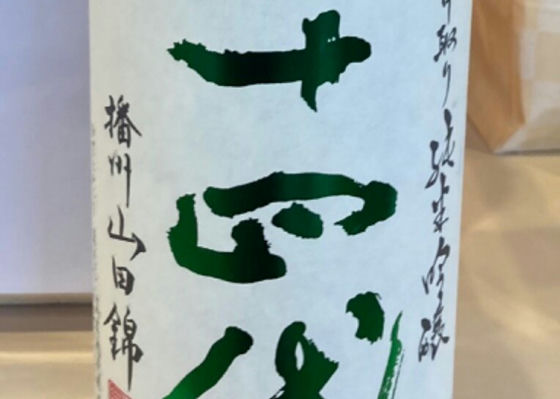 取り純米吟醸
十四代
播州山田錦